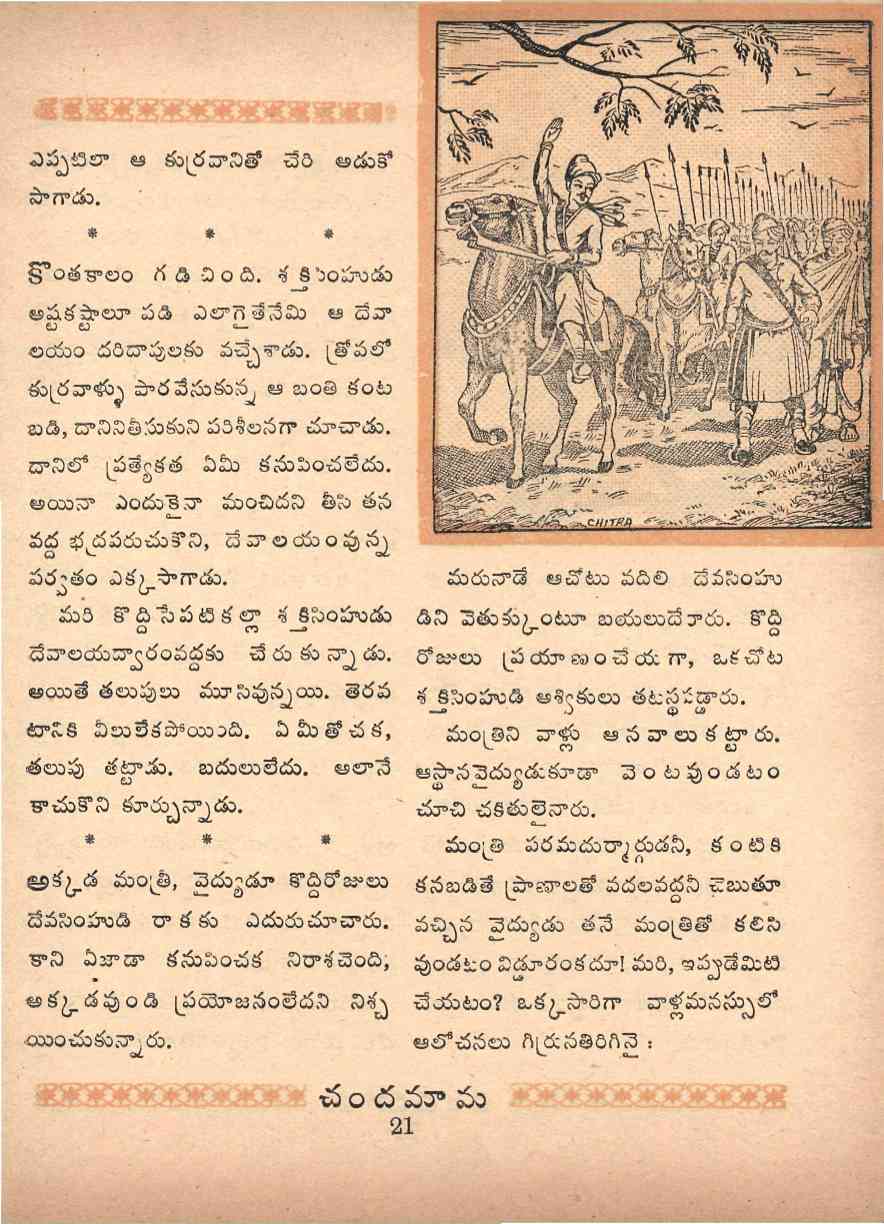 ఎప్పటిలా ఆ కుర్రవానితో చేరి అడుకో
సాగాడు.
* * *
కొంతకాలం గడిచింది. శక్తిసింహుడు
అష్టకష్టాలూ పడి ఎలాగైతేనేమి ఆ దేవా
లయం దరిదాపులకు వచ్చేశాడు. త్రోవలో
కుర్రవాళ్ళు పారవేసుకున్న ఆ బంతి కంట
బడి, దానినితీసుకుని పరిశీలనగా చూచాడు.
దానిలో ప్రత్యేకత ఏమీ కనుపించలేదు.
అయినా ఎందుకైనా మంచిదని తీసి తన
వద్ద భద్రపరుచుకొని, దేవాలయంవున్న
పర్వతం ఎక్కసాగాడు.
మరి కొద్దిసేపటికల్లా శక్తిసింహుడు
దేవాలయద్వారంవద్దకు చేరుకున్నాడు.
అయితే తలుపులు మూసివున్నయి. తెరవ
టానికి వీలులేకపోయింది. ఏమీతోచక,
తలుపు తట్టాడు. బదులులేదు. అలానే
కాచుకొని కూర్చున్నాడు.
* * *
అక్కడ మంత్రీ, వైద్యుడూ కొద్దిరోజులు
దేవసింహుడి రాకకు ఎదురుచూచారు.
కాని ఏజాడా కనుపించక నిరాశచెంది,
అక్కడవుండి ప్రయోజనంలేదని నిశ్చ
యించుకున్నారు.
CHITRA
మరునాడే ఆచోటు వదిలి దేవసింహు
డిని వెతుక్కుంటూ బయలుదేరారు. కొద్ది
రోజులు ప్రయాణంచేయగా, ఒకచోట
శక్తిసింహుడి ఆశ్వికులు తటస్థపడ్డారు.
మంత్రిని వాళ్లు ఆనవాలుకట్టారు.
ఆస్థానవైద్యుడుకూడా వెంటవుండటం
చూచి చకితులైనారు.
మంత్రి పరమదుర్మార్గుడనీ, కంటికి
కనబడితే ప్రాణాలతో వదలవద్దనీ చెబుతూ
వచ్చిన వైద్యుడు తనే మంత్రితో కలిసి
వుండటం విడ్డూరంకదూ! మరి, ఇప్పుడేమిటి
చేయటం? ఒక్కసారిగా వాళ్లమనస్సులో
ఆలోచనలు గిర్రునతిరిగినై :
చందమామ
21